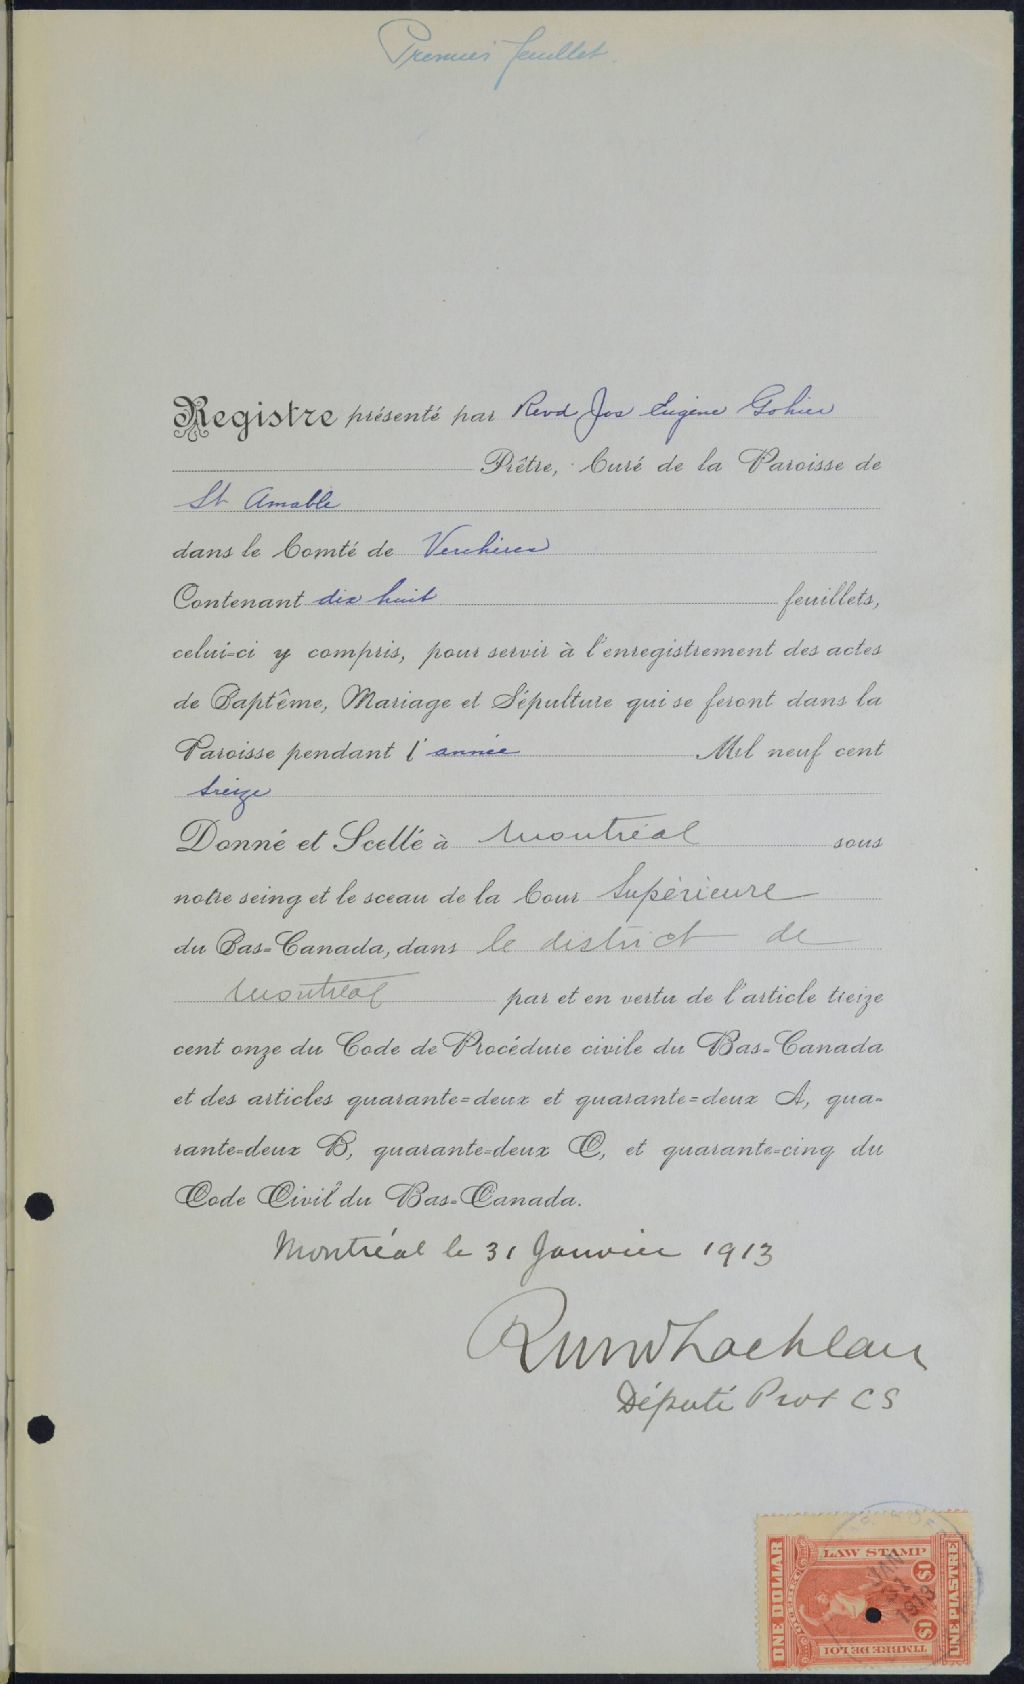 Premier feuillet.
Registre présenté par Revd Jos Eugène Gohier
Prêtre, Curé de la Paroisse de
St Amable
dans le Comté de Verchères
Contenant dix huit feuillets,
celui-ci y compris, pour servir à l'enregistrement des actes
de Baptême, Mariage et Sépulture qui se feront dans la
Paroisse pendant l'année Mil neuf cent
treize
Donné et Scellé à Montréal sous
notre seing et le sceau de la Cour Supérieure
du Bas-Canada, dans le district de
Montréal par et en vertu de l'article treize
cent onze du Code de Procédure civile du Bas-Canada
et des articles quarante-deux et quarante-deux A, qua-
rante-deux B, quarante-deux C, et quarante-cinq du
Code Civil du Bas-Canada.
Montréal le 31 Janvier 1913
Député Prot CS
LAW STAMP
ONE DOLLAR
QUEBEC
$1
$1
UNE PIASTRE
TIMBRE DE LOI
JAN
31
1913